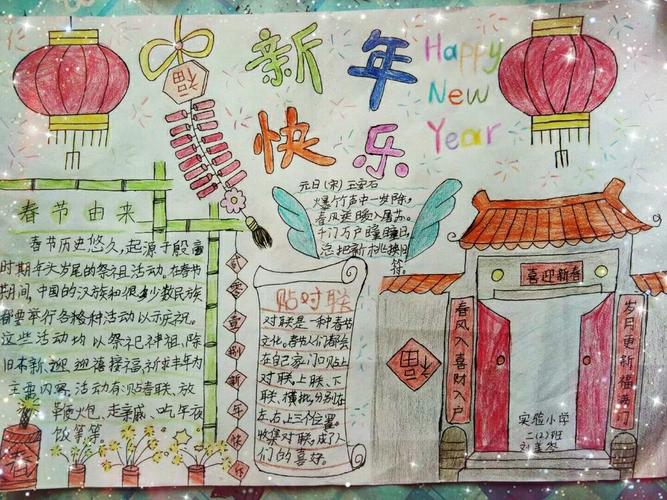 新年
快乐
Happy
New
Year
福
春节由来
春节历史悠久,起源于殷商
时期年头岁尾的祭祖活动。在春节
期间,中国的汉族和很多少数民族
都要举行各种活动以示庆祝。
这些活动均以祭祀神祖、除
旧布新、迎禧接福、祈求丰年为
主要内容。活动有:贴春联、放
鞭炮、走亲戚、吃年夜
饭等等。
元日(宋)王安石
爆竹声中一岁除,
春风送暖入屠苏。
千门万户曈曈日,
总把新桃换旧
符。
贰零壹捌新年快乐
贴对联
对联是一种春节
文化。春节人们都会
在自己家门口贴上
对联。上联、下
联、横批,分别在
左、右、上三个位置。
收集对联,成了人
们的喜好。
喜迎新春
春风入喜财入户
岁月更新福满门
福
春
实验小学
二(2)班